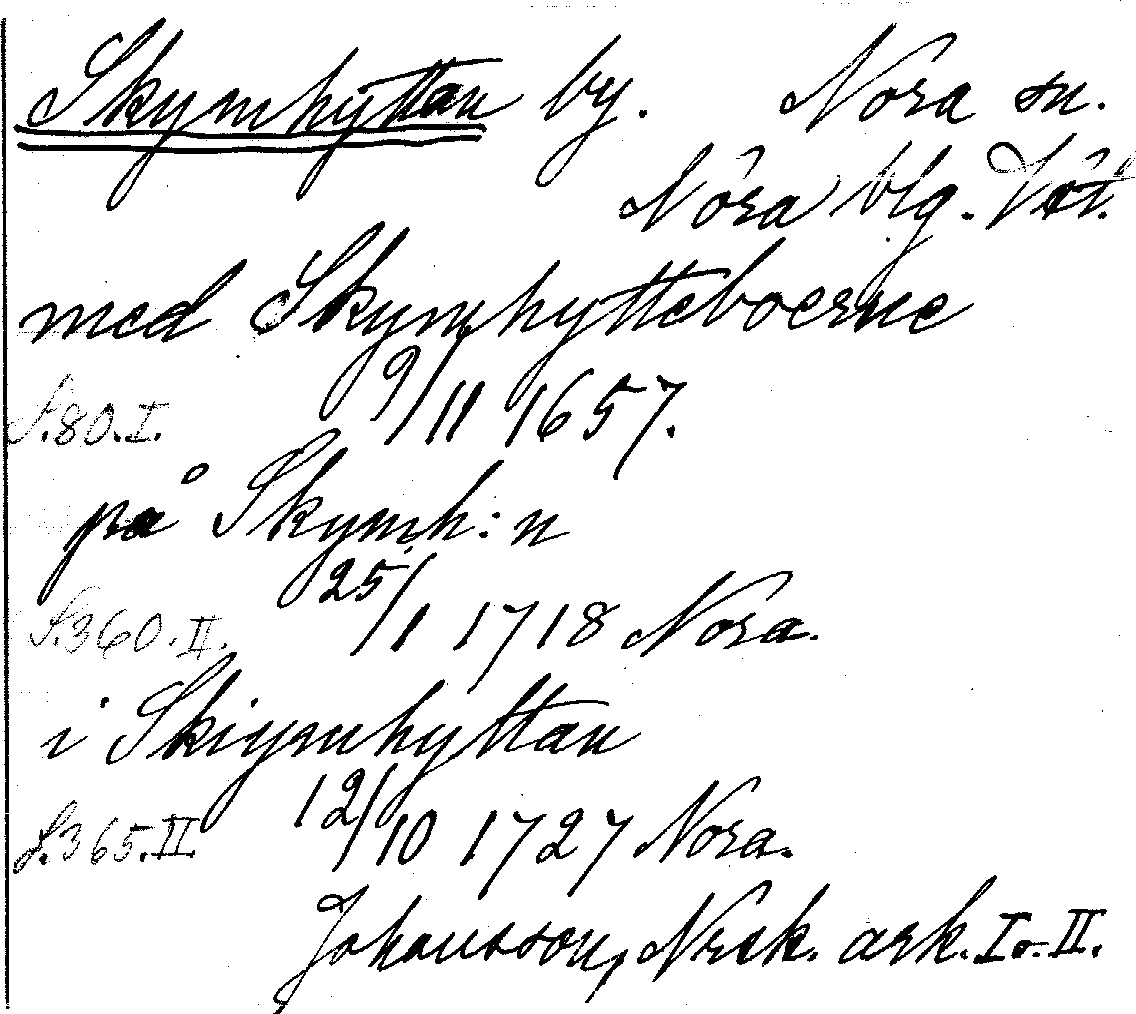 Skymhyttan by. Nora sn.
Nora blg. Vstl.
med Skymhytteboerne
S.80.I. 9/11 1657.
på Skymh:n
S.360.II. 25/1 1718 Nora.
i Skiymhyttan
S.365.II. 12/10 1727 Nora.
Johansson, Nrck. ark. I o. II.